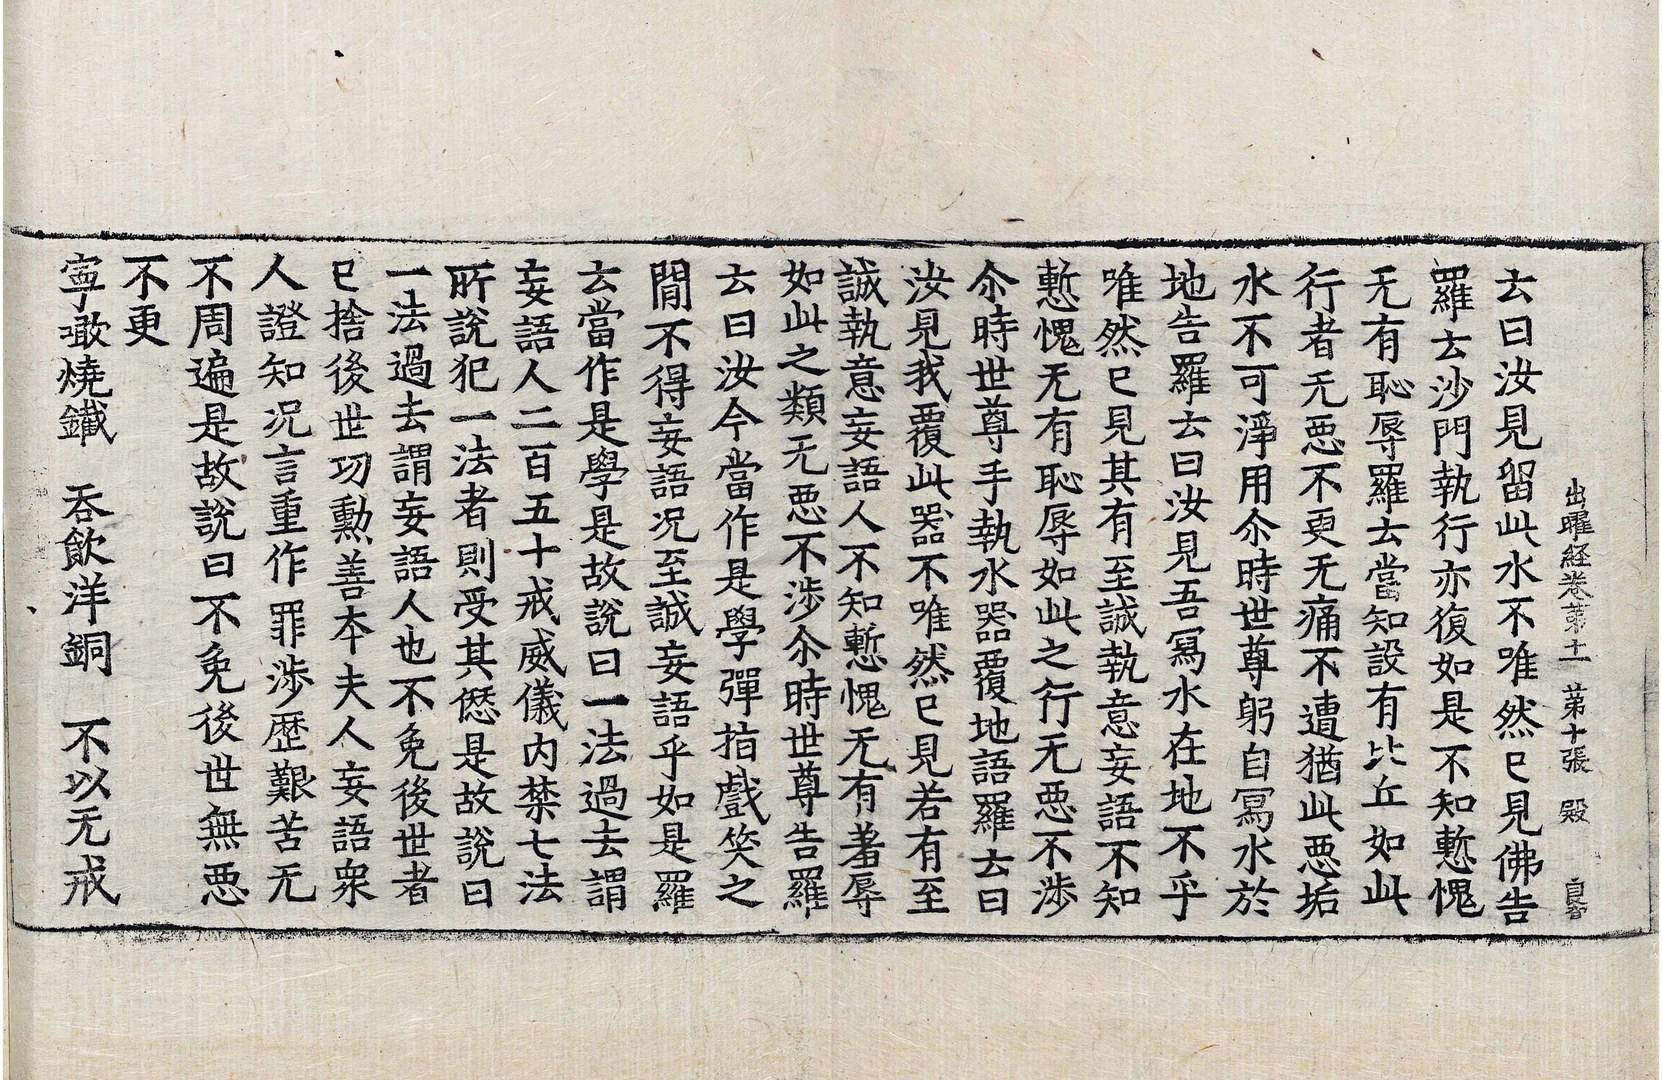 出曜経卷苐十一 苐十張 殿 良智
云曰汝見留此水不唯然已見佛告
羅云沙門執行亦復如是不知慙愧
无有恥辱羅云當知設有比丘如此
行者无惡不更无痛不遭猶此惡垢
水不可淨用尒時世尊躬自寫水於
地告羅云曰汝見吾寫水在地不乎
唯然已見其有至誠執意妄語不知
慙愧无有恥辱如此之行无惡不涉
尒時世尊手執水器覆地語羅云曰
汝見我覆此器不唯然已見若有至
誠執意妄語人不知慙愧无有羞辱
如此之類无惡不涉尒時世尊告羅
云曰汝今當作是學彈指戲笑之
閒不得妄語况至誠妄語乎如是羅
云當作是學是故說曰一法過去謂
妄語人二百五十戒威儀内禁七法
所說犯一法者則受其𠍴是故說曰
一法過去謂妄語人也不免後世者
已捨後世功勳善本夫人妄語衆
人證知况言重作罪涉歷艱苦无
不周遍是故說曰不免後世無惡
不更
寧噉燒鐵 吞飲洋銅 不以无戒